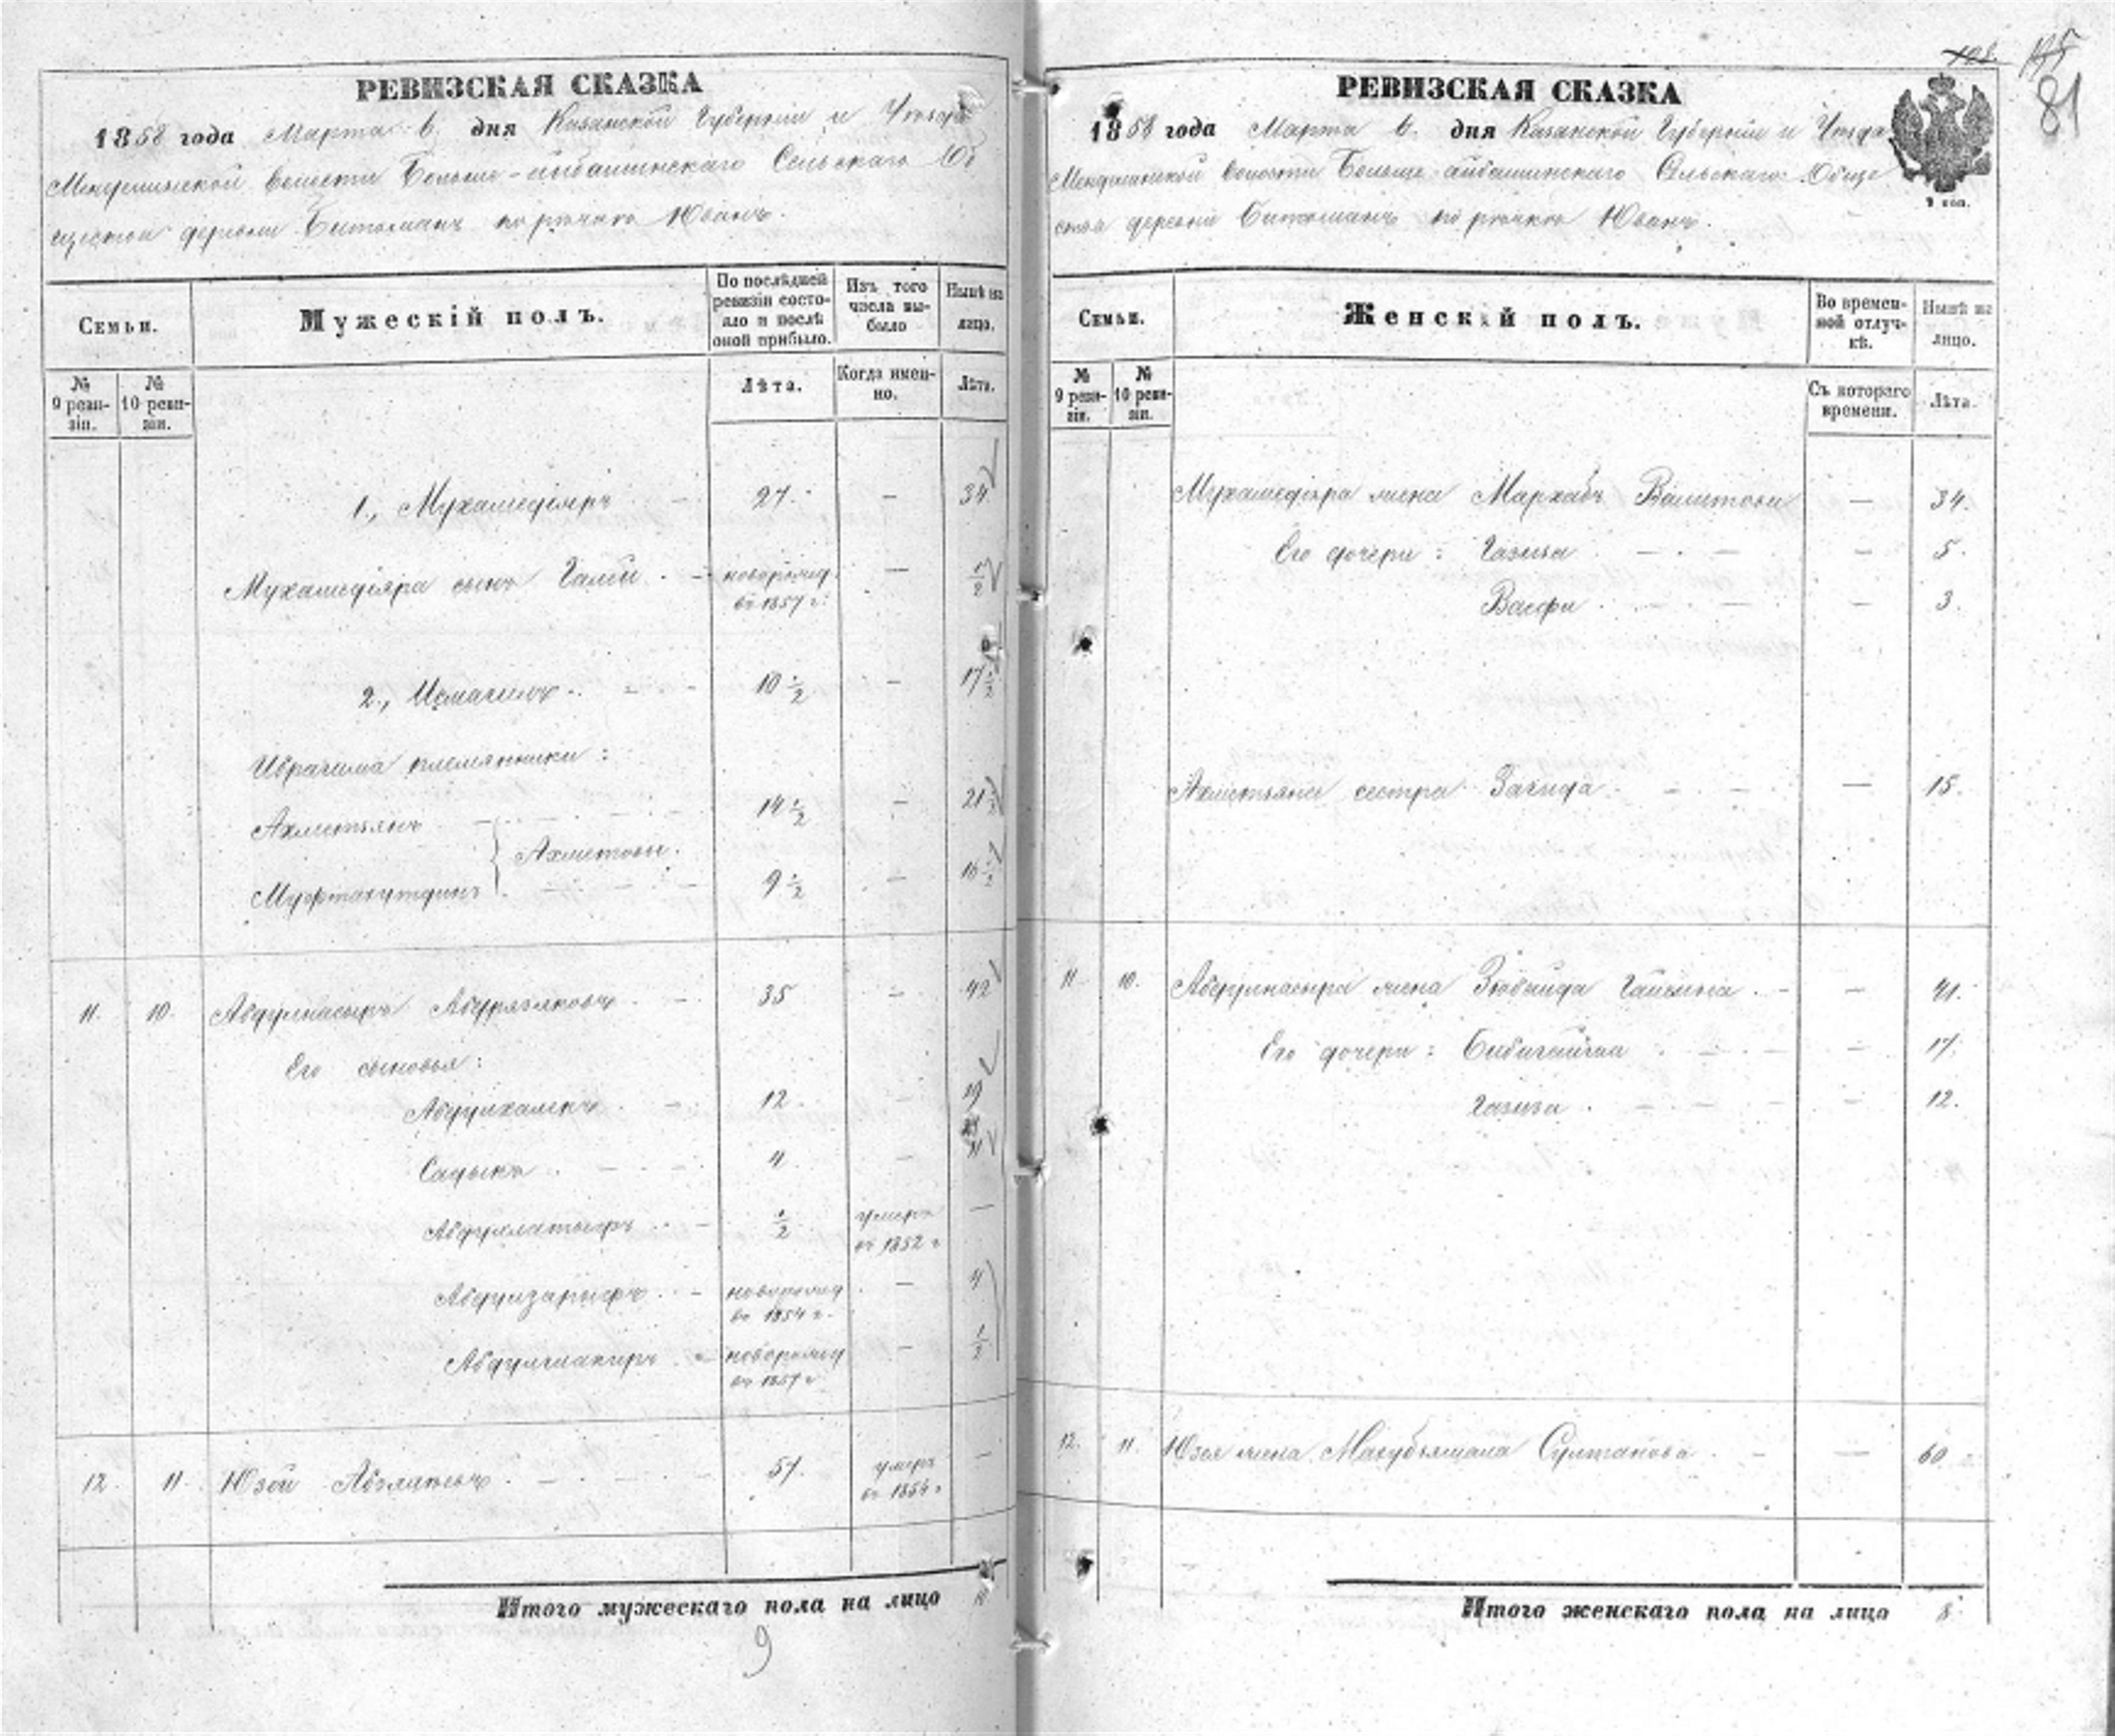 РЕВИЗСКАЯ СКАЗКА
1858 года Марта 6. дня Казанской Губернии и Уезда
волости Больше-айбашинскаго Сельскаго Об
щества деревни Битаманъ по речке Юванъ.
Семьи.
Мужескій полъ.
По послѣдней ревизіи состояло и послѣ оной прибыло.
Изъ того числа выбыло
Нынѣ на лицо.
№ 9 ревизіи.
№ 10 ревизіи.
Лѣта.
Когда именно.
Лѣта.
1., Мухамедіяръ 27. — 34
Мухамедіяра сынъ Галій новорожд. въ 1857 г. — 1/2
2., Исмагилъ 10 1/2 — 17 1/2
Ибрагима племянники:
Ахметьянъ 14 1/2 — 21 1/2
Ахметовы.
Муфтахутдинъ 9 1/2 — 16 1/2
11. 10. Абдулнасыръ Абдрязяковъ 35 — 42
Его сыновья:
Абдулхаликъ 12. — 19
Садыкъ 4. — 11
Абдуллатыфъ 1/2 умеръ въ 1852 г —
Абдулзарифъ новорожд въ 1854 г. — 4
Абдулшакиръ новорожд въ 1857 г — 1/2
12. 11. Юзей 57. умеръ въ 1854 г —
Итого мужескаго пола на лицо
9
81
РЕВИЗСКАЯ СКАЗКА
1858 года Марта 6. дня Казанской Губерніи и Уезда
волости Больше-айбашинскаго Сельскаго Обще
ства деревни Битаманъ по речке Юванъ.
Семьи.
Женскій полъ.
Во временной отлучкѣ.
Нынѣ на лицо.
№ 9 ревизіи.
№ 10 ревизіи.
Съ котораго времени.
Лѣта.
Мухамедіяра жена Мархабъ Валитова — 34.
Его дочери: Газиза — 5.
Васфи — 3.
Ахметьяна сестра Загида — 15.
11. 10. Абдулнасыра жена Зювейда — 41.
Его дочери: — 17.
Газиза — 12.
12. 11. Юзея жена Султанова — 60
Итого женскаго пола на лицо 8